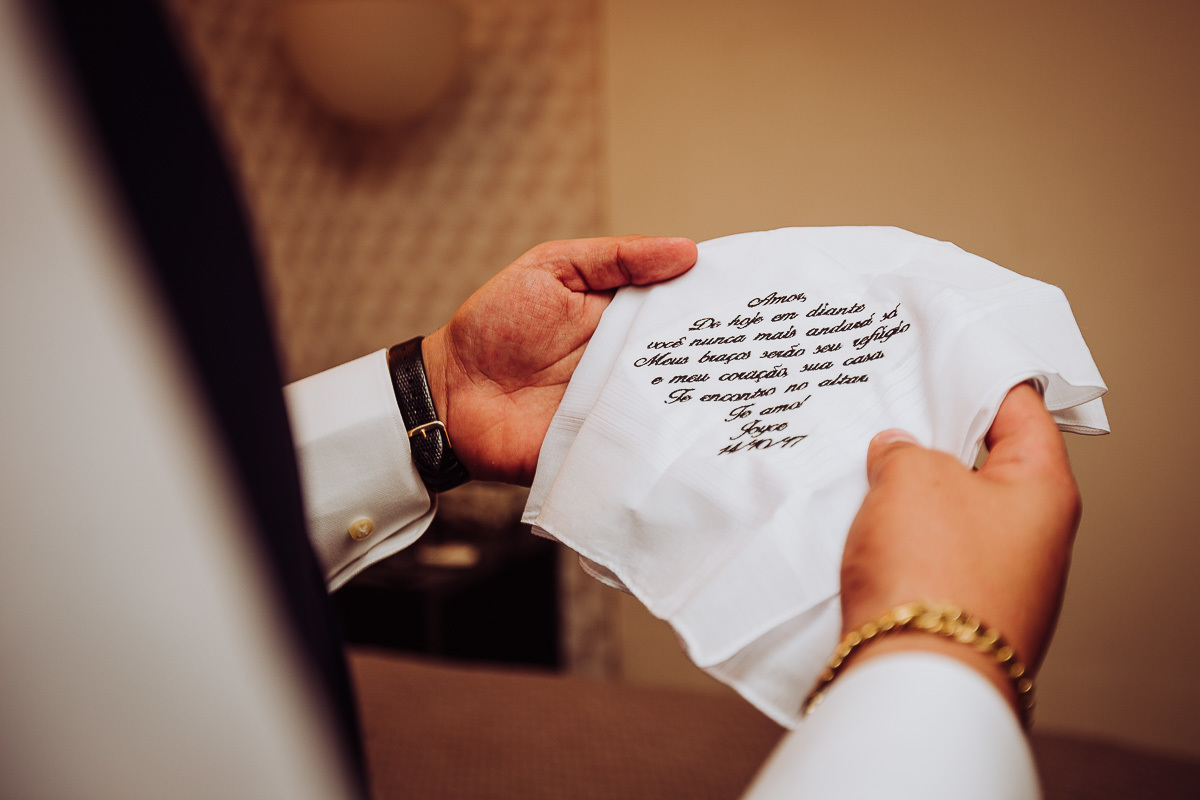 Amor,
De hoje em diante
você nunca mais andará só
Meus braços serão seu refúgio
e meu coração, sua casa.
Te encontro no altar.
Te amo!
Joyce
14/10/17